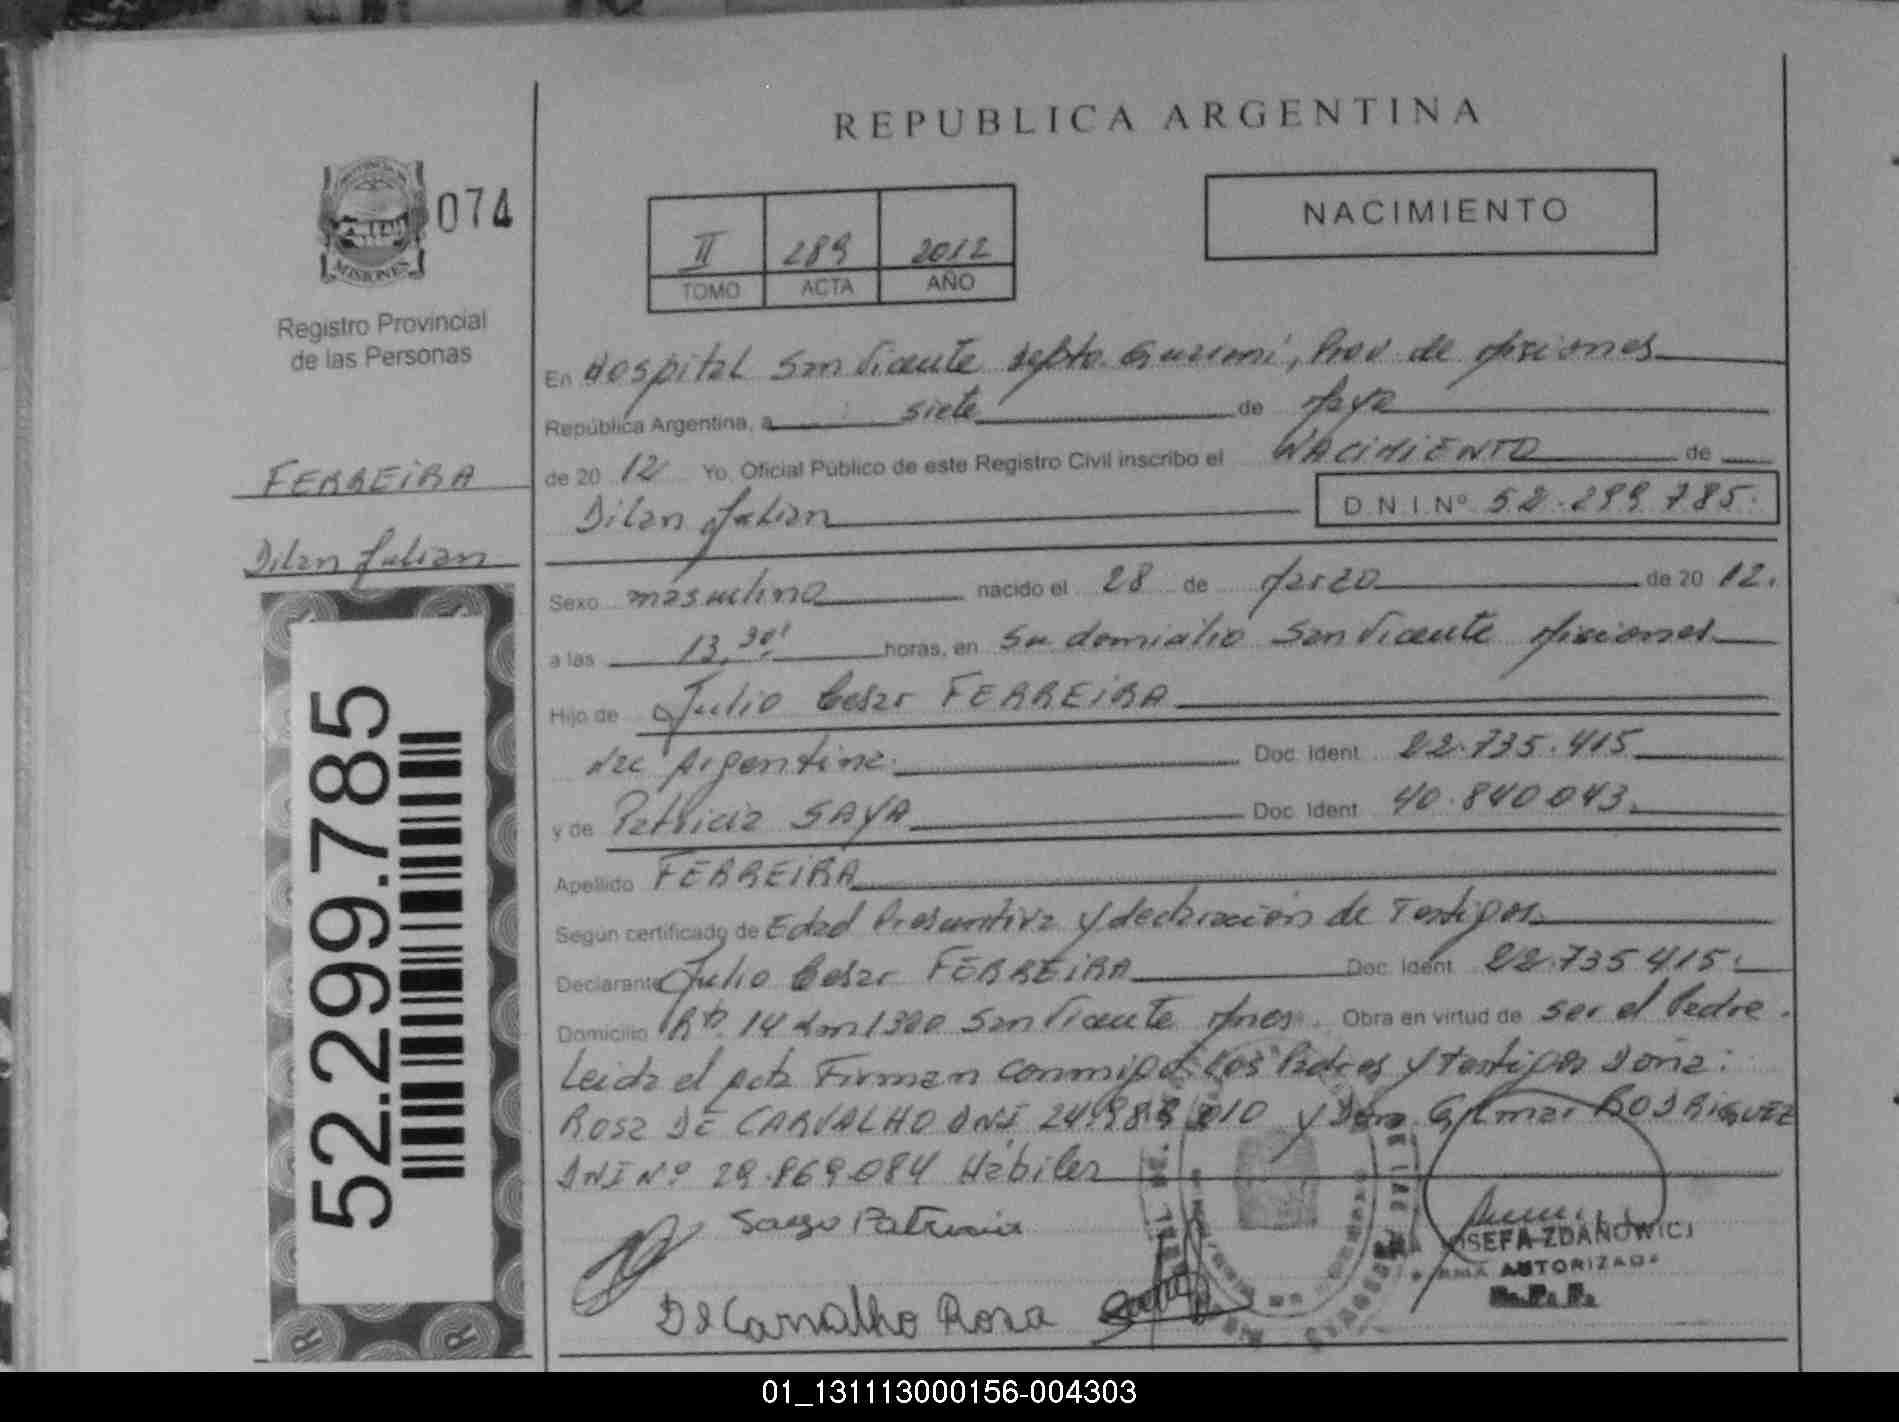 REPUBLICA ARGENTINA
074
MISIONES
Registro Provincial
de las Personas
II 289 2012
TOMO ACTA AÑO
NACIMIENTO
En Hospital San Vicente Depto. Guaraní, Prov. de Misiones
República Argentina, a siete de Mayo
de 20 12 Yo, Oficial Público de este Registro Civil inscribo el NACIMIENTO de
Dilan Julian D.N.I. Nº 52.299.785.
FERREIRA
Dilan Julian
52.299.785
Sexo masculino nacido el 28 de Marzo de 20 12.
a las 13,30' horas, en Su domicilio San Vicente Misiones
Hijo de Julio Cesar FERREIRA
Nac Argentina. Doc. Ident. 22.735.415
y de Patricia SAYA Doc. Ident. 40.840.043.
Apellido FERREIRA
Según certificado de Edad Presuntiva y declaración de Testigos.
Declarante Julio Cesar FERREIRA Doc. Ident. 22.735.415.
Domicilio Rta. 14 km 1300 San Vicente Mnes. Obra en virtud de ser el Padre.
Leida el acta Firman conmigo Los Padres y testigos Doña:
Rosa DE CARVALHO DNI y Gilmar RODRIGUEZ
DNI Nº 29.869.084 Hábiles
Patricia
De Carvalho Rosa
ZDANOWICZ
AUTORIZADA
01_131113000156-004303